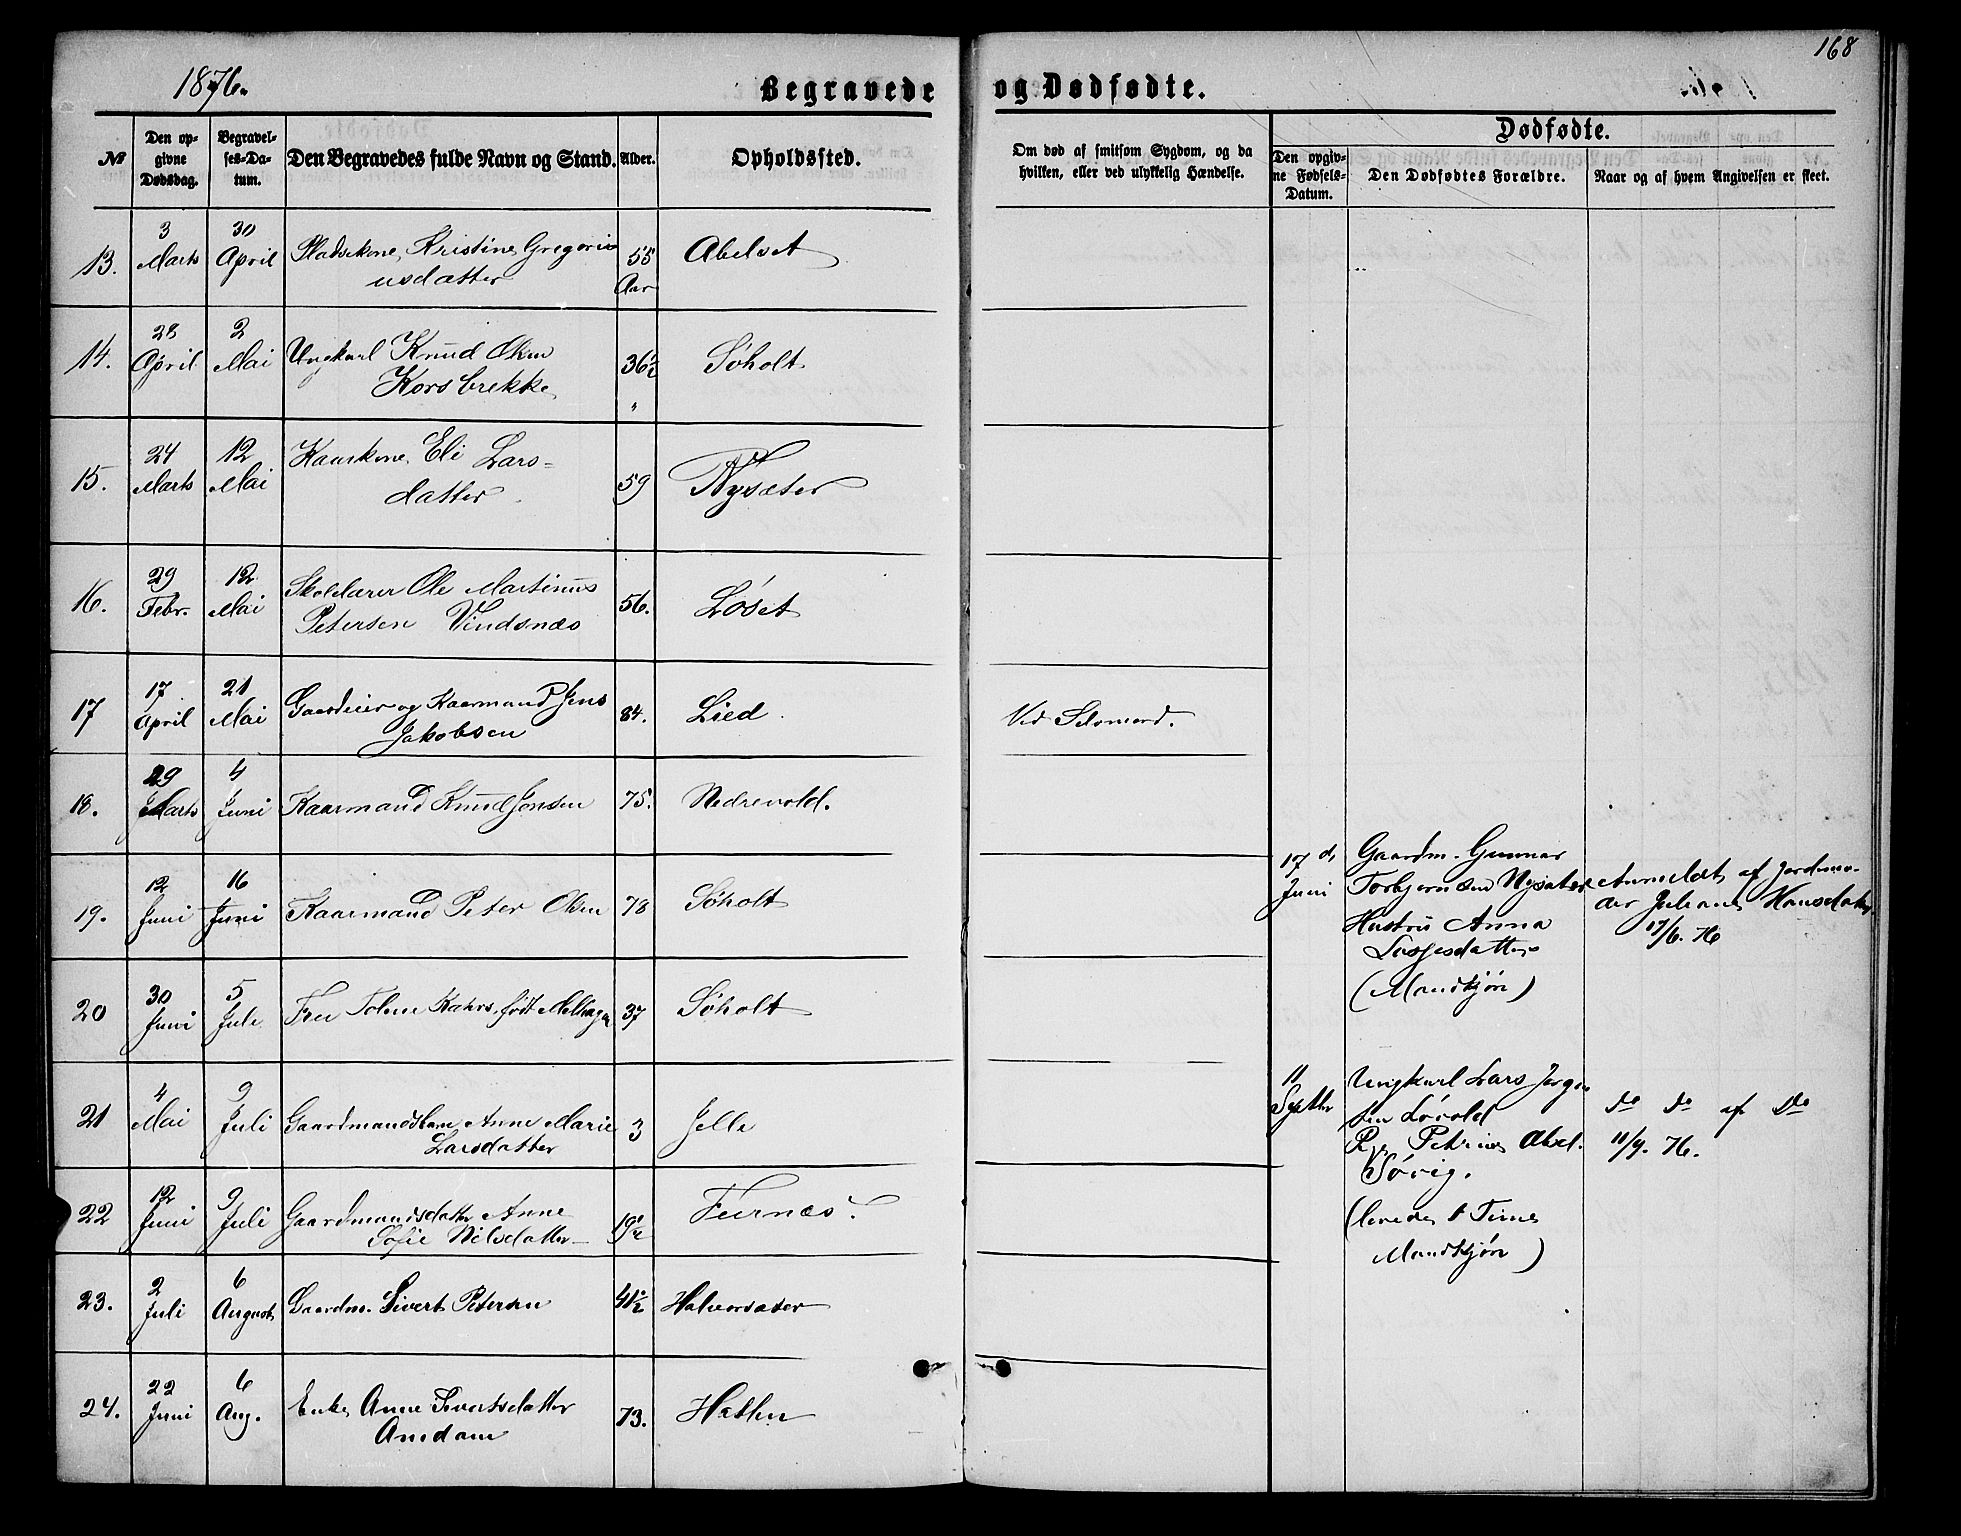 168
1876.
Begravede og Dødfødte.
№
Den op-
givne
Dødsdag.
Begravel-
ses-Da-
tum.
Den Begravedes fulde Navn og Stand.
Alder.
Opholdssted.
Om død af smitsom Sygdom, og da
hvilken, eller ved ulykkelig Hændelse.
Dødfødte.
Den opgiv-
ne Fødsels-
Datum.
Den Dødfødtes Forældre.
Naar og af hvem Angivelsen er skeet.
13. 3 Marts 30 April Pladskone Kristine Gregori-
usdatter 55 Aar Abelset
14. 28 April 2 Mai Ungkarl Knud Olsen
Korsbrekke 36½ " Søholt
15. 24 Marts 12 Mai Kaarkone Eli Lars-
datter 59 Nysæter
16. 29 Febr. 12 Mai Skolelærer Ole Martinus
Petersen Vindsnæs 56. Løset
17 17 April 21 Mai Gaardeier og Kaarmand Jens
Jakobsen 84. Lied. Ved Selvmord.
18. 29 Marts 4 Juni Kaarmand Knud Jonsen 75. Nedrevold.
19. 12 Juni 16 Juni Kaarmand Peter Olsen 78 Søholt
20 30 Juni 5 Juli Fru Kahrs, født 37 Søholt
21 4 Mai 9 Juli Gaardmandsbarn Anne Marie
Larsdatter 3 Jelle
22 12 Juni 9 Juli Gaardmandsdatter Anne
Sofie Nilsdatter 19½ Furnæs.
23. 2 Juli 6 August Gaardm. Sivert Petersen 41½ Halvorsæter
24. 22 Juni 6 Aug. Enke Anne Sivertsdatter
Amdam 73. Hatlen
17 d. Juni
Gaardm. Gunnar
Torbjørnsen Nysæter
Hustru Anna
Lassesdatter
(Mandkjøn)
Anmeldt af Jordemo-
der Juliane Hansdatter
17/6. 76
11 Septbr
Ungkarl Lars Jørgen-
sen Løvold
Pige Petrine Abel.
Søvig.
(levede 1 Time
Mandkjøn)
Do Do af Do
11/9. 76.